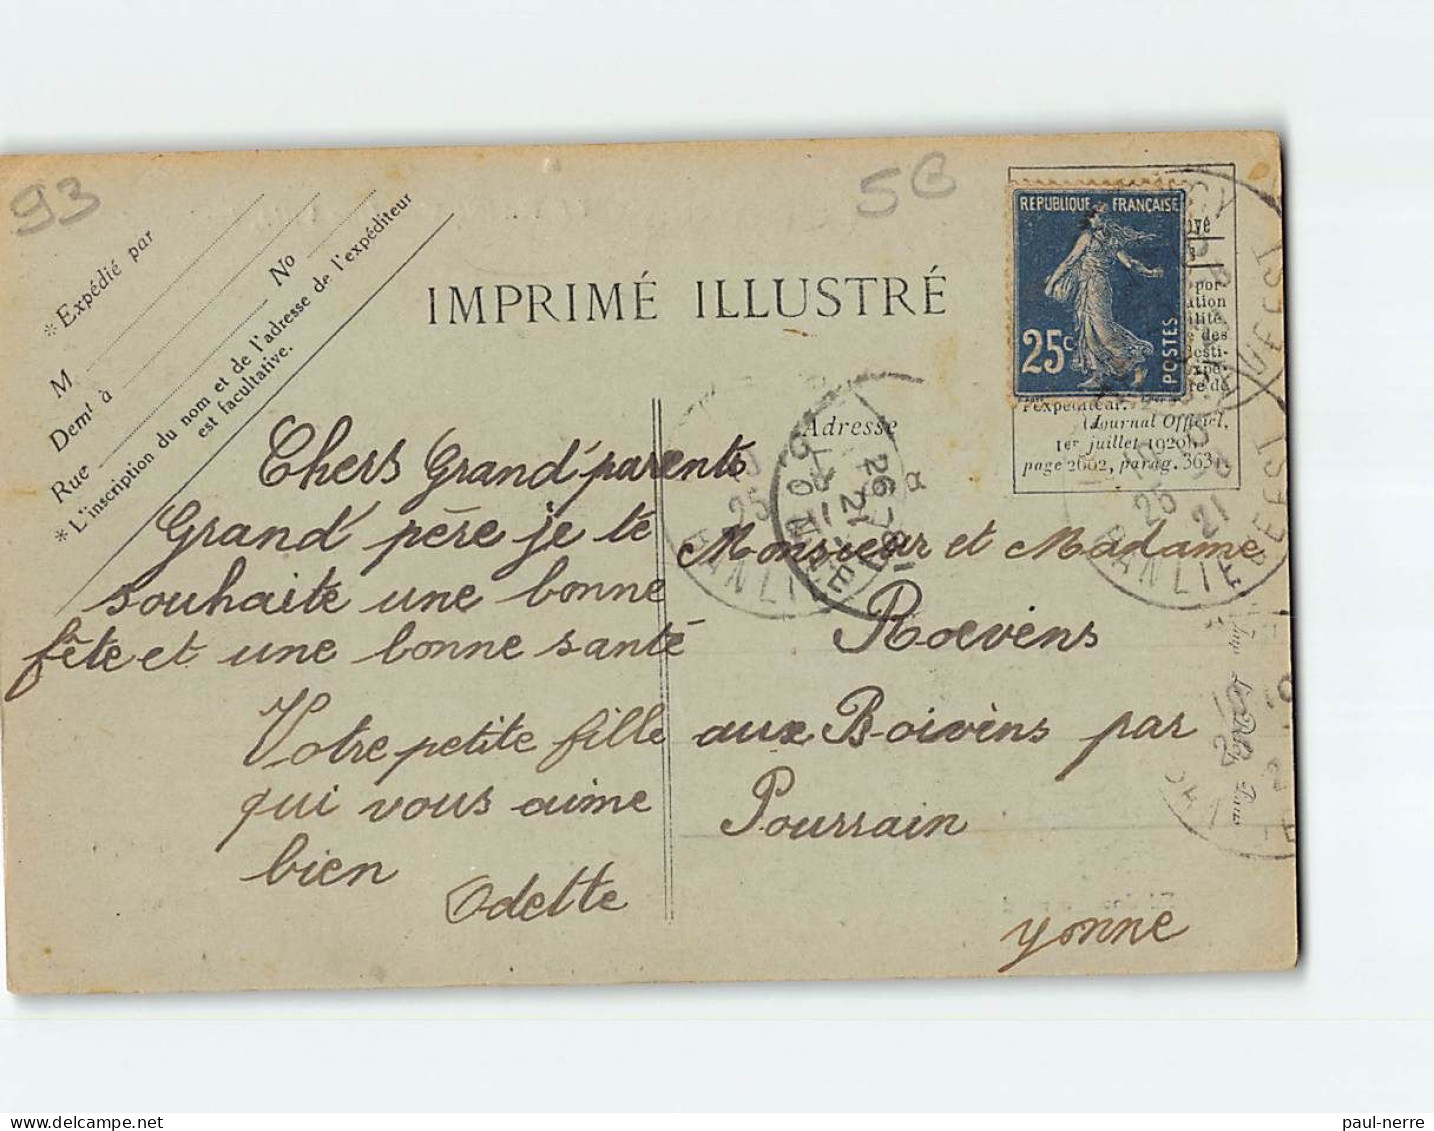 93
5B
* Expédié par
M
Nº
Demt à
Rue
* L'inscription du nom et de l'adresse de l'expéditeur
est facultative.
IMPRIMÉ ILLUSTRÉ
REPUBLIQUE FRANÇAISE
25c
POSTES
l'expéditeur.
(Journal Officiel,
1er juillet 1920),
page 2602, parag. 363)
Adresse
Chers Grand'parents
Grand' père je te
souhaite une bonne
fête et une bonne santé
Votre petite fille
qui vous aime
bien
Odette
Monsieur et Madame
Roevens
aux Boivins par
Pourrain
Yonne
YONNE
26
21
BANLIEUE EST
25
21
OUEST
paul-nerre